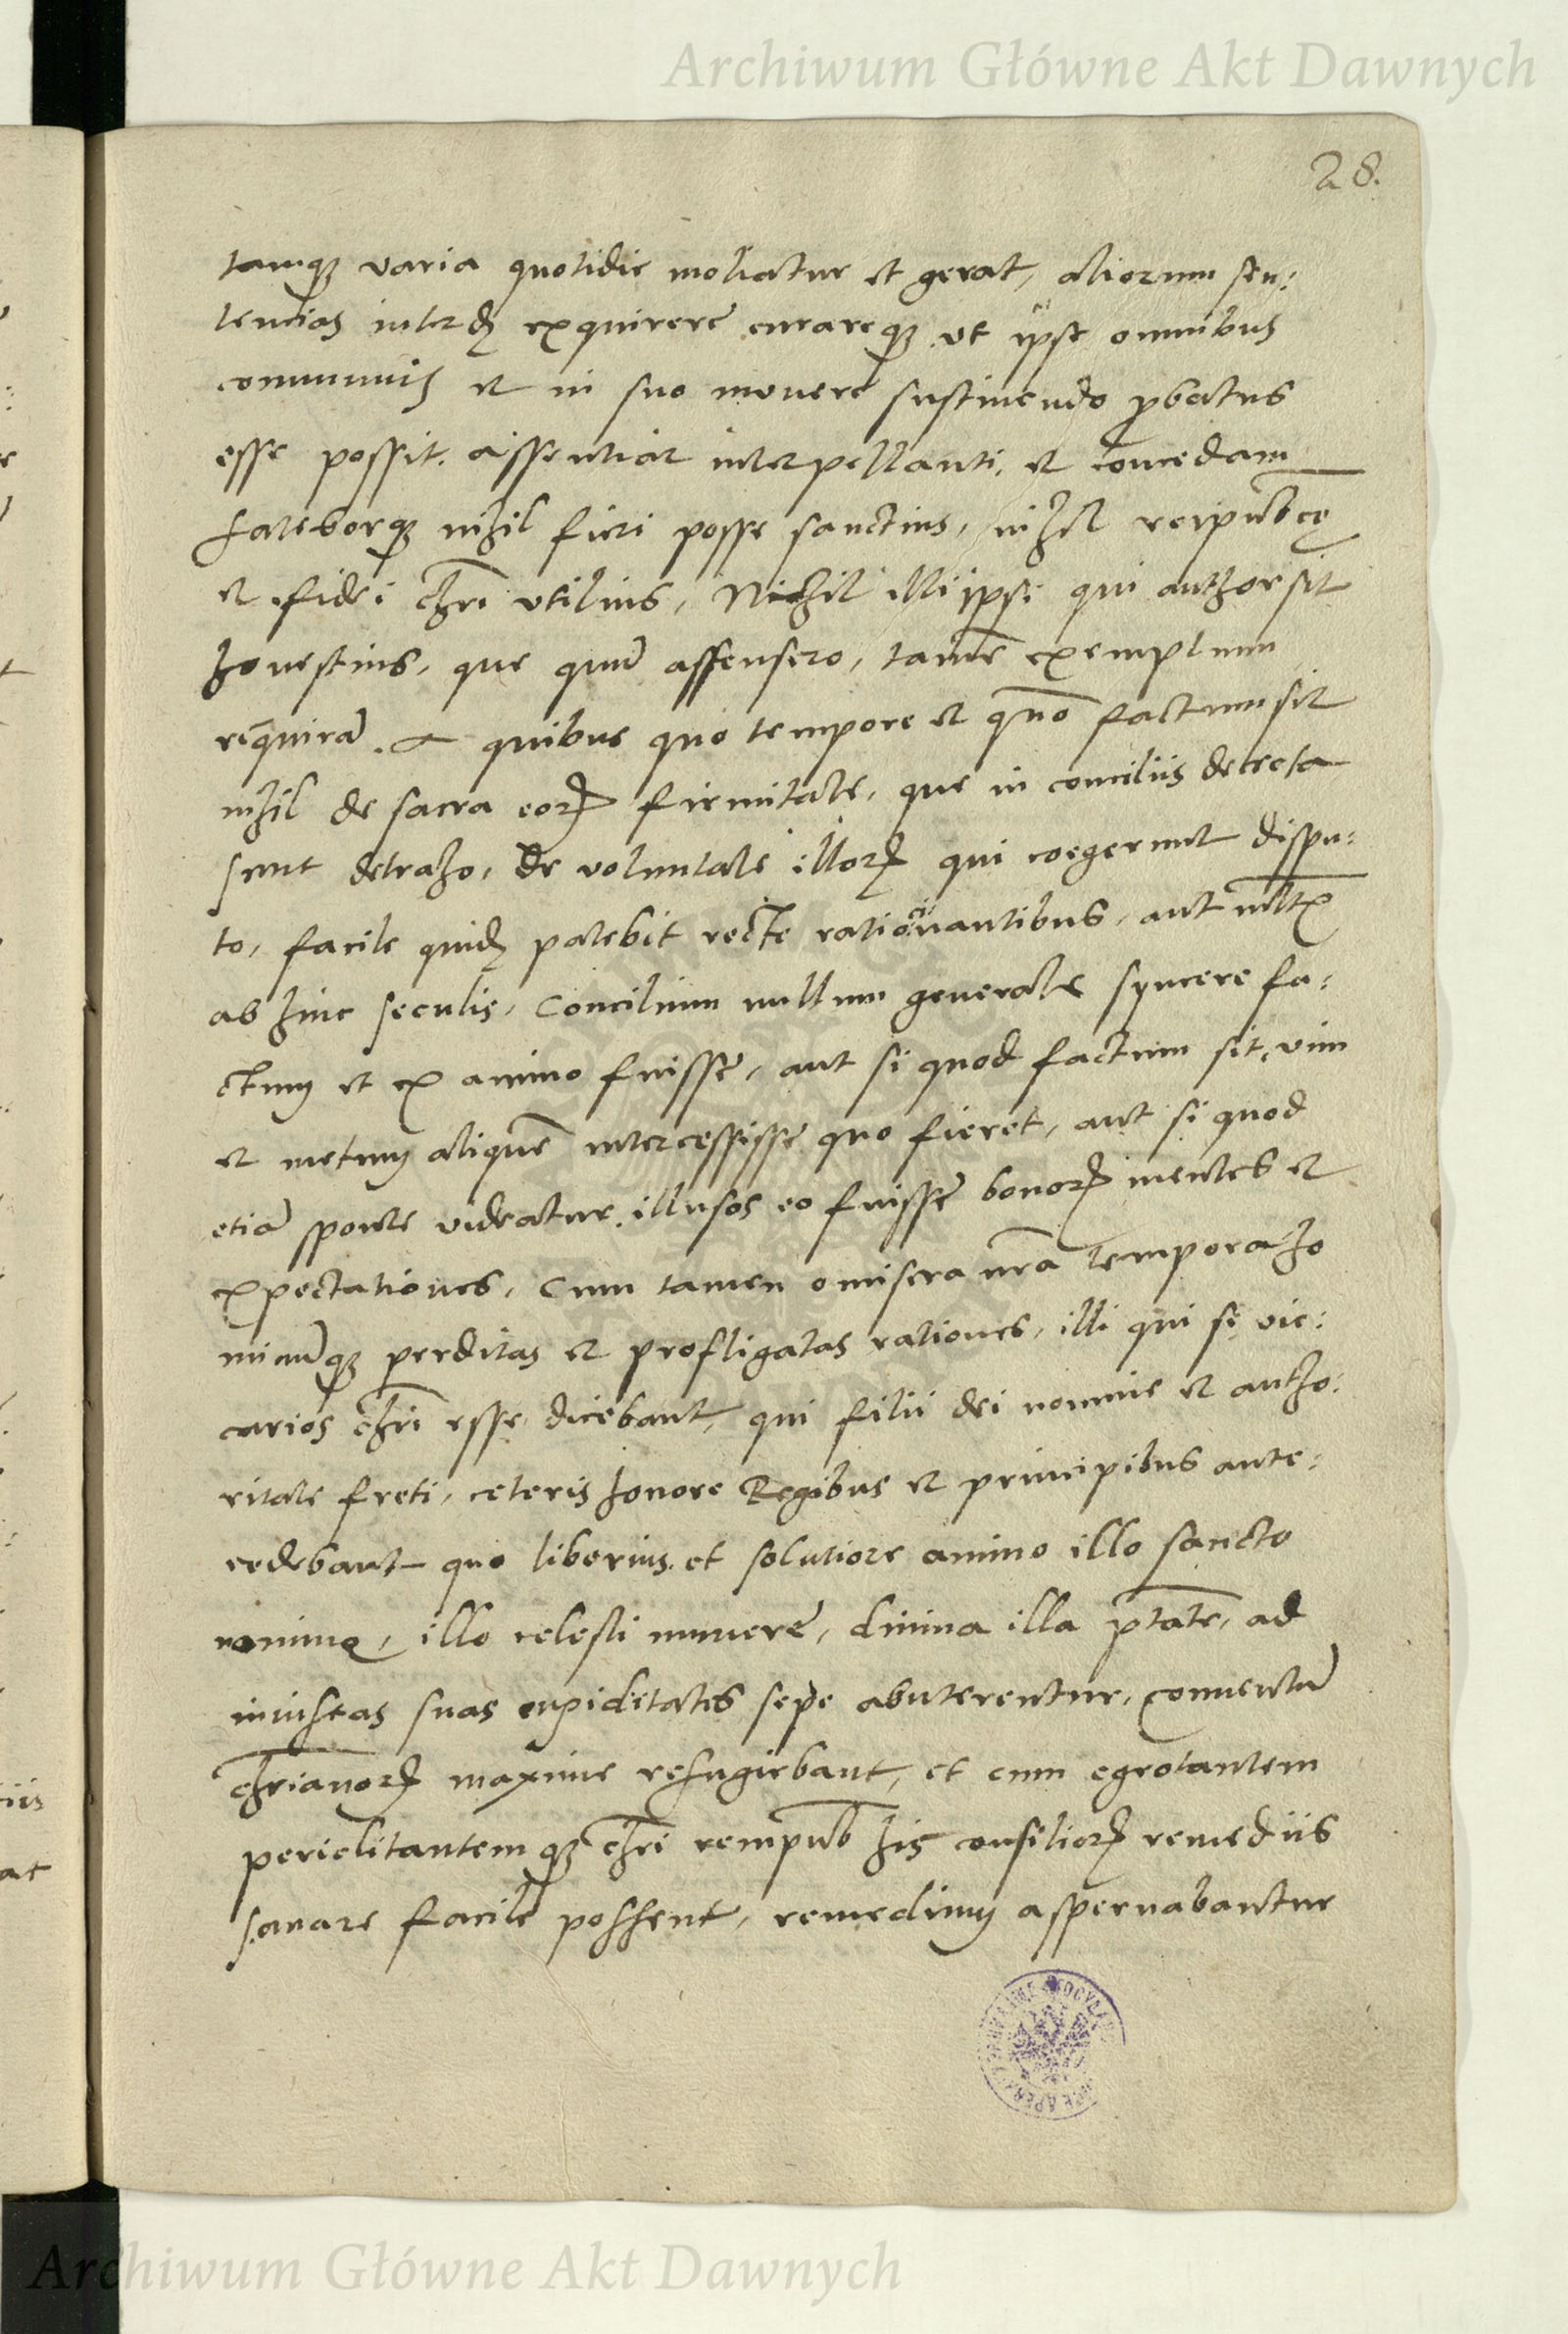 Archiwum Główne Akt Dawnych
28.
tamq3 varia quotidie moliatur et gerat, aliorum sen:
tencias interd3 exquirere curareq3 ut ipse omnibus
communis et in suo munere sustinendo probatus
esse possit. assentiar interpellanti, et concedam
fateborq3 nihil fieri posse sanctius, nihil reipublicę
et fidei chri utilius, Nichil illi ipsi qui author sit
honestius, que quum assensero, tamē exemplum
requirā. A quibus quo tempore et quō factum sit
nihil de sacra eor3 firmitate, que in conciliis decreta
sunt detraho, de voluntate illor3 qui coegerunt dispu:
to, facile quid3 patebit recte ratiocinantibus, aut multis
ab hinc seculis, Concilium nullum generale syncere fa:
ctum et ex animo fuisse, aut si quod factum sit, vim
et metum aliquē intercessisse quo fieret, aut si quod
etiā sponte videatur, illusos eo fuisse bonor3 mentes et
expectationes, Cum tamen o misera nrā tempora ho
minūq3 perditas et profligatas rationes, illi qui se vic:
carios chri esse dicebant, qui filii dei nomine et autho:
ritate freti, ceteris honore Regibus et principibus ante:
cedebant quo liberius et solutiore animo illo sancto
nomine, illo celesti munere, divina illa ptāte, ad
iniustas suas cupiditates sepe abuterentur, conventū
chrianor3 maxime refugiebant, et cum egrotantem
periclitantem q3 chri rempub his consilior3 remediis
sanare facile possent, remedium aspernabantur
Archiwum Główne Akt Dawnych